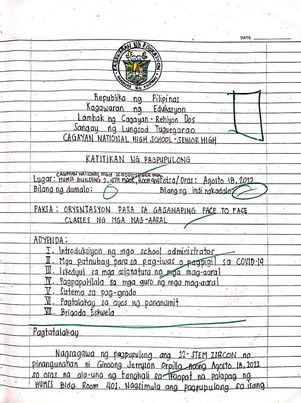 DATE:
Republika ng Pilipinas
Kagawaran ng Edukasyon
Lambak ng Cagayan - Rehiyon Dos
Sangay ng Lungsod Tuguegarao
CAGAYAN NATIONAL HIGH SCHOOL - SENIOR HIGH
KATITIKAN NG PAGPUPULONG
CAGAYAN NATIONAL HIGH SCHOOL - SENIOR HIGH
Lugar: HUMSS BUILDING 2, 4TH FLOOR, Petsa/Oras: Agosto 18, 2022
Bilang ng dumalo: 0 Bilang ng indi nakadalo:
PAKSA: ORYENTASYON PARA SA GAGANAPING FACE TO FACE
CLASSES NG MGA MAG-AARAL
ADYENDA:
I. Introduksiyon ng mga school administrator
II. Mga patnubay para sa pag-iwas o pagpigil sa COVID-19
III. Iskedyul sa mga asignatura ng mga mag-aaral
IV. Pagpapakilala sa mga guro ng mga mag-aaral
V. Sistema sa pag-grado
VI. Pagtalakay sa ayos ng pananamit
VII. Brigada Eskwela
Pagtatalakay
Nagsagawa ng pagpupulong ang 12-STEM ZIRCON na
pinangunahan ni Ginoong Jerryson Orpilla noong Agosto 18, 2022
sa oras na ala-una ng tanghali sa ikaapat na palapag ng
HUMSS Bldg. Room 401. Nagsimula ang pagpupulong sa isang